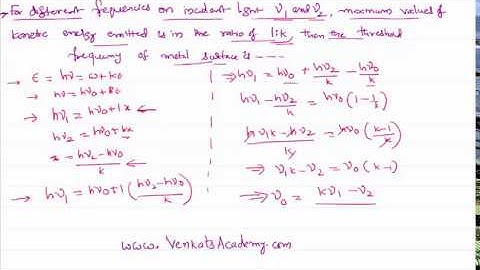 → For different frequencies on incident light ν1 and ν2, maximum values of
kinetic energy emitted is in the ratio of 1:k, then the threshold
frequency of metal surface is ----
→ E = hν = ω + KE
→ hν = hν0 + KE
→ hν1 = hν0 + 1x ←
hν2 = hν0 + kx
x = hν2 - hν0 / k ←
→ hν1 = hν0 + 1 (hν2 - hν0 / k)
⇒ hν1 = hν0 + hν2/k - hν0/k
hν1 - hν2/k = hν0 (1 - 1/k)
hν1k - hν2 / k = hν0 (k-1 / k)
⇒ ν1k - ν2 = ν0 (k-1)
⇒ ν0 = kν1 - ν2
www. VenkatsAcademy.com